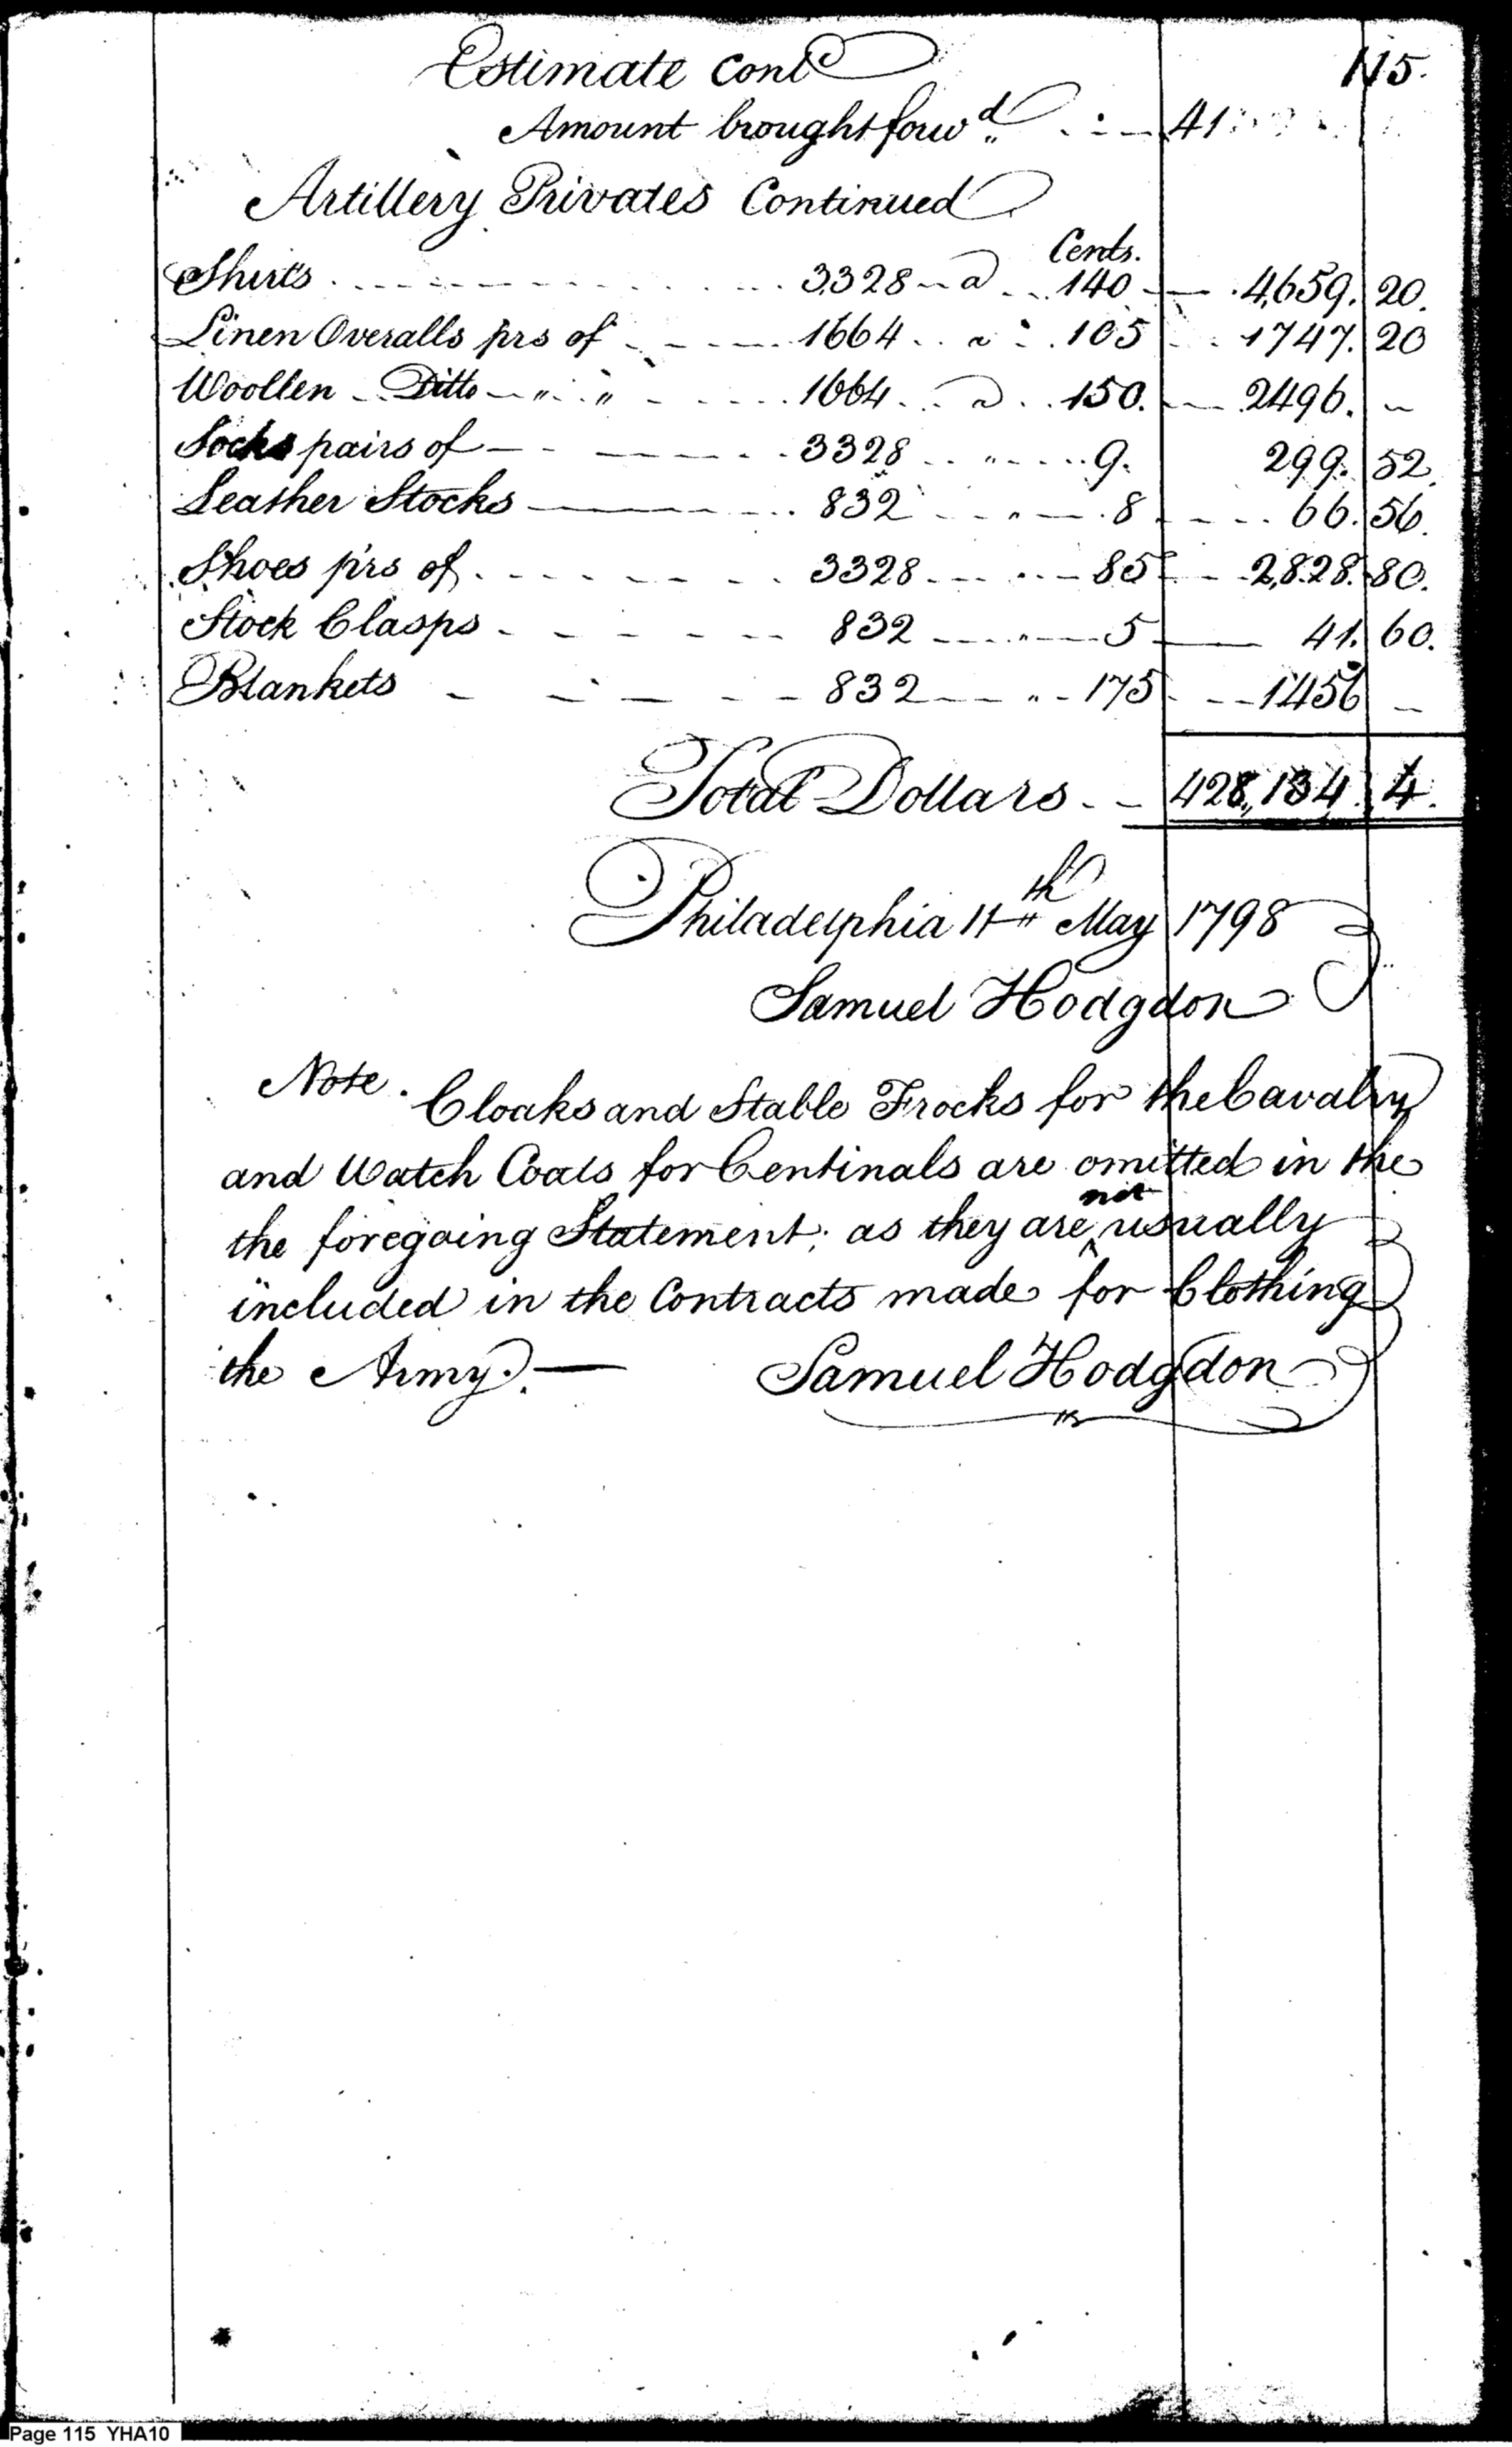 Estimate Cont.d 115.
Amount brought forw.d 41
Artillery Privates Continued
Cents.
Shirts 3328 a 140 4,659. 20.
Linen Overalls prs of 1664 a 105 1747. 20
Woollen Ditto " " 1664 a 150. 2496. ~
Socks pairs of 3328 " 9. 299. 52.
Leather Stocks 832 " 8 66. 56.
Shoes prs of 3328 " 85 2,828. 80.
Stock Clasps 832 " 5 41. 60.
Blankets 832 " 175 1456 ~
Total Dollars 428,134. 4.
Philadelphia 11th May 1798
Samuel Hodgdon
Note. Cloaks and Stable Frocks for the Cavalry
and Watch Coats for Centinals are omitted in the
the foregoing Statement; as they are not usually
included in the Contracts made for Clothing
the Army.— Samuel Hodgdon
Page 115 YHA10